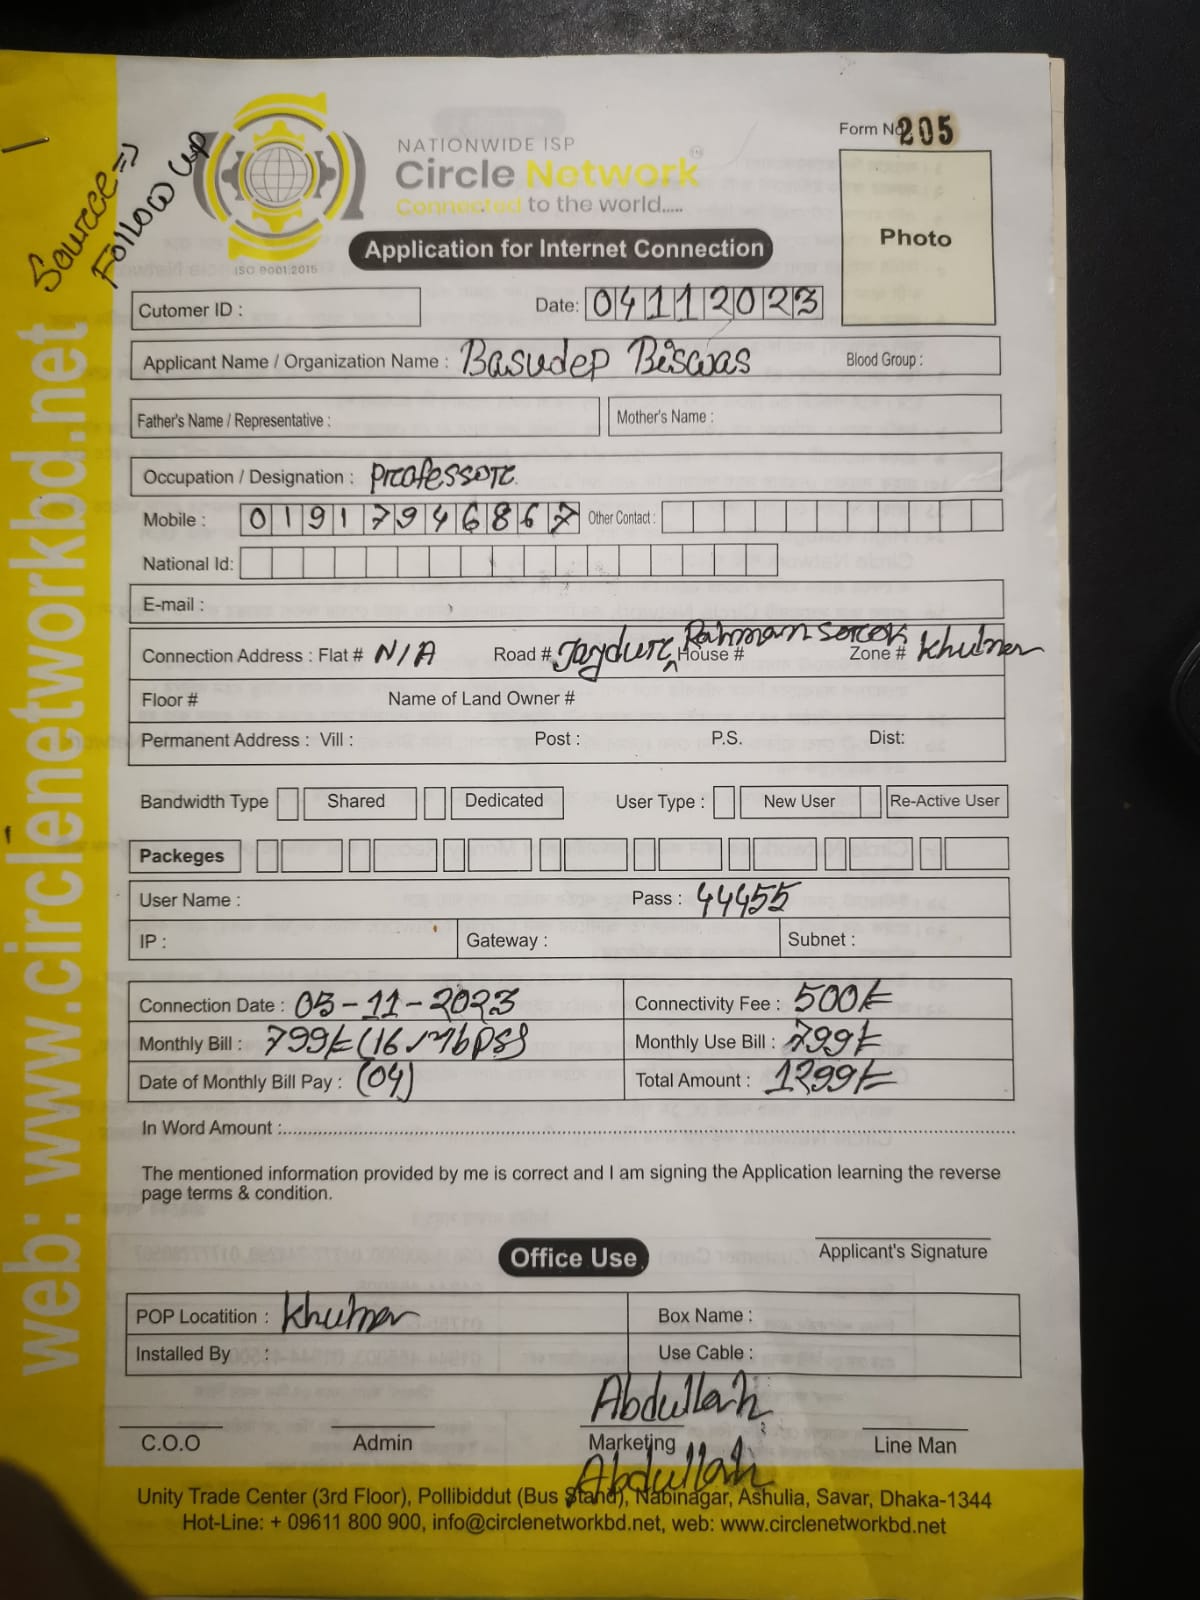 Source => Follow up
NATIONWIDE ISP
Circle Network
Connected to the world.....
ISO 9001:2015
Application for Internet Connection
Form No 205
Photo
Cutomer ID :
Date: 04112023
Applicant Name / Organization Name : Basudep Biswas Blood Group :
Father's Name / Representative : Mother's Name :
Occupation / Designation : Professore.
Mobile : 01917946867 Other Contact :
National Id:
E-mail :
Connection Address : Flat # N/A Road # Rahman House # Zone # Khulna
Floor # Name of Land Owner #
Permanent Address : Vill : Post : P.S. Dist:
Bandwidth Type Shared Dedicated User Type : New User Re-Active User
Packeges
User Name : Pass : 44455
IP : Gateway : Subnet :
Connection Date : 05-11-2023 Connectivity Fee : 500/=
Monthly Bill : 799/= (16 Mbps) Monthly Use Bill : 799/=
Date of Monthly Bill Pay : (04) Total Amount : 1299/=
In Word Amount :
The mentioned information provided by me is correct and I am signing the Application learning the reverse
page terms & condition.
Applicant's Signature
Office Use
POP Locatition : Khulna Box Name :
Installed By : Use Cable :
Abdullah
C.O.O Admin Marketing Line Man
Abdullah
Unity Trade Center (3rd Floor), Pollibiddut (Bus Stand), Nabinagar, Ashulia, Savar, Dhaka-1344
Hot-Line: + 09611 800 900, info@circlenetworkbd.net, web: www.circlenetworkbd.net
web: www.circlenetworkbd.net